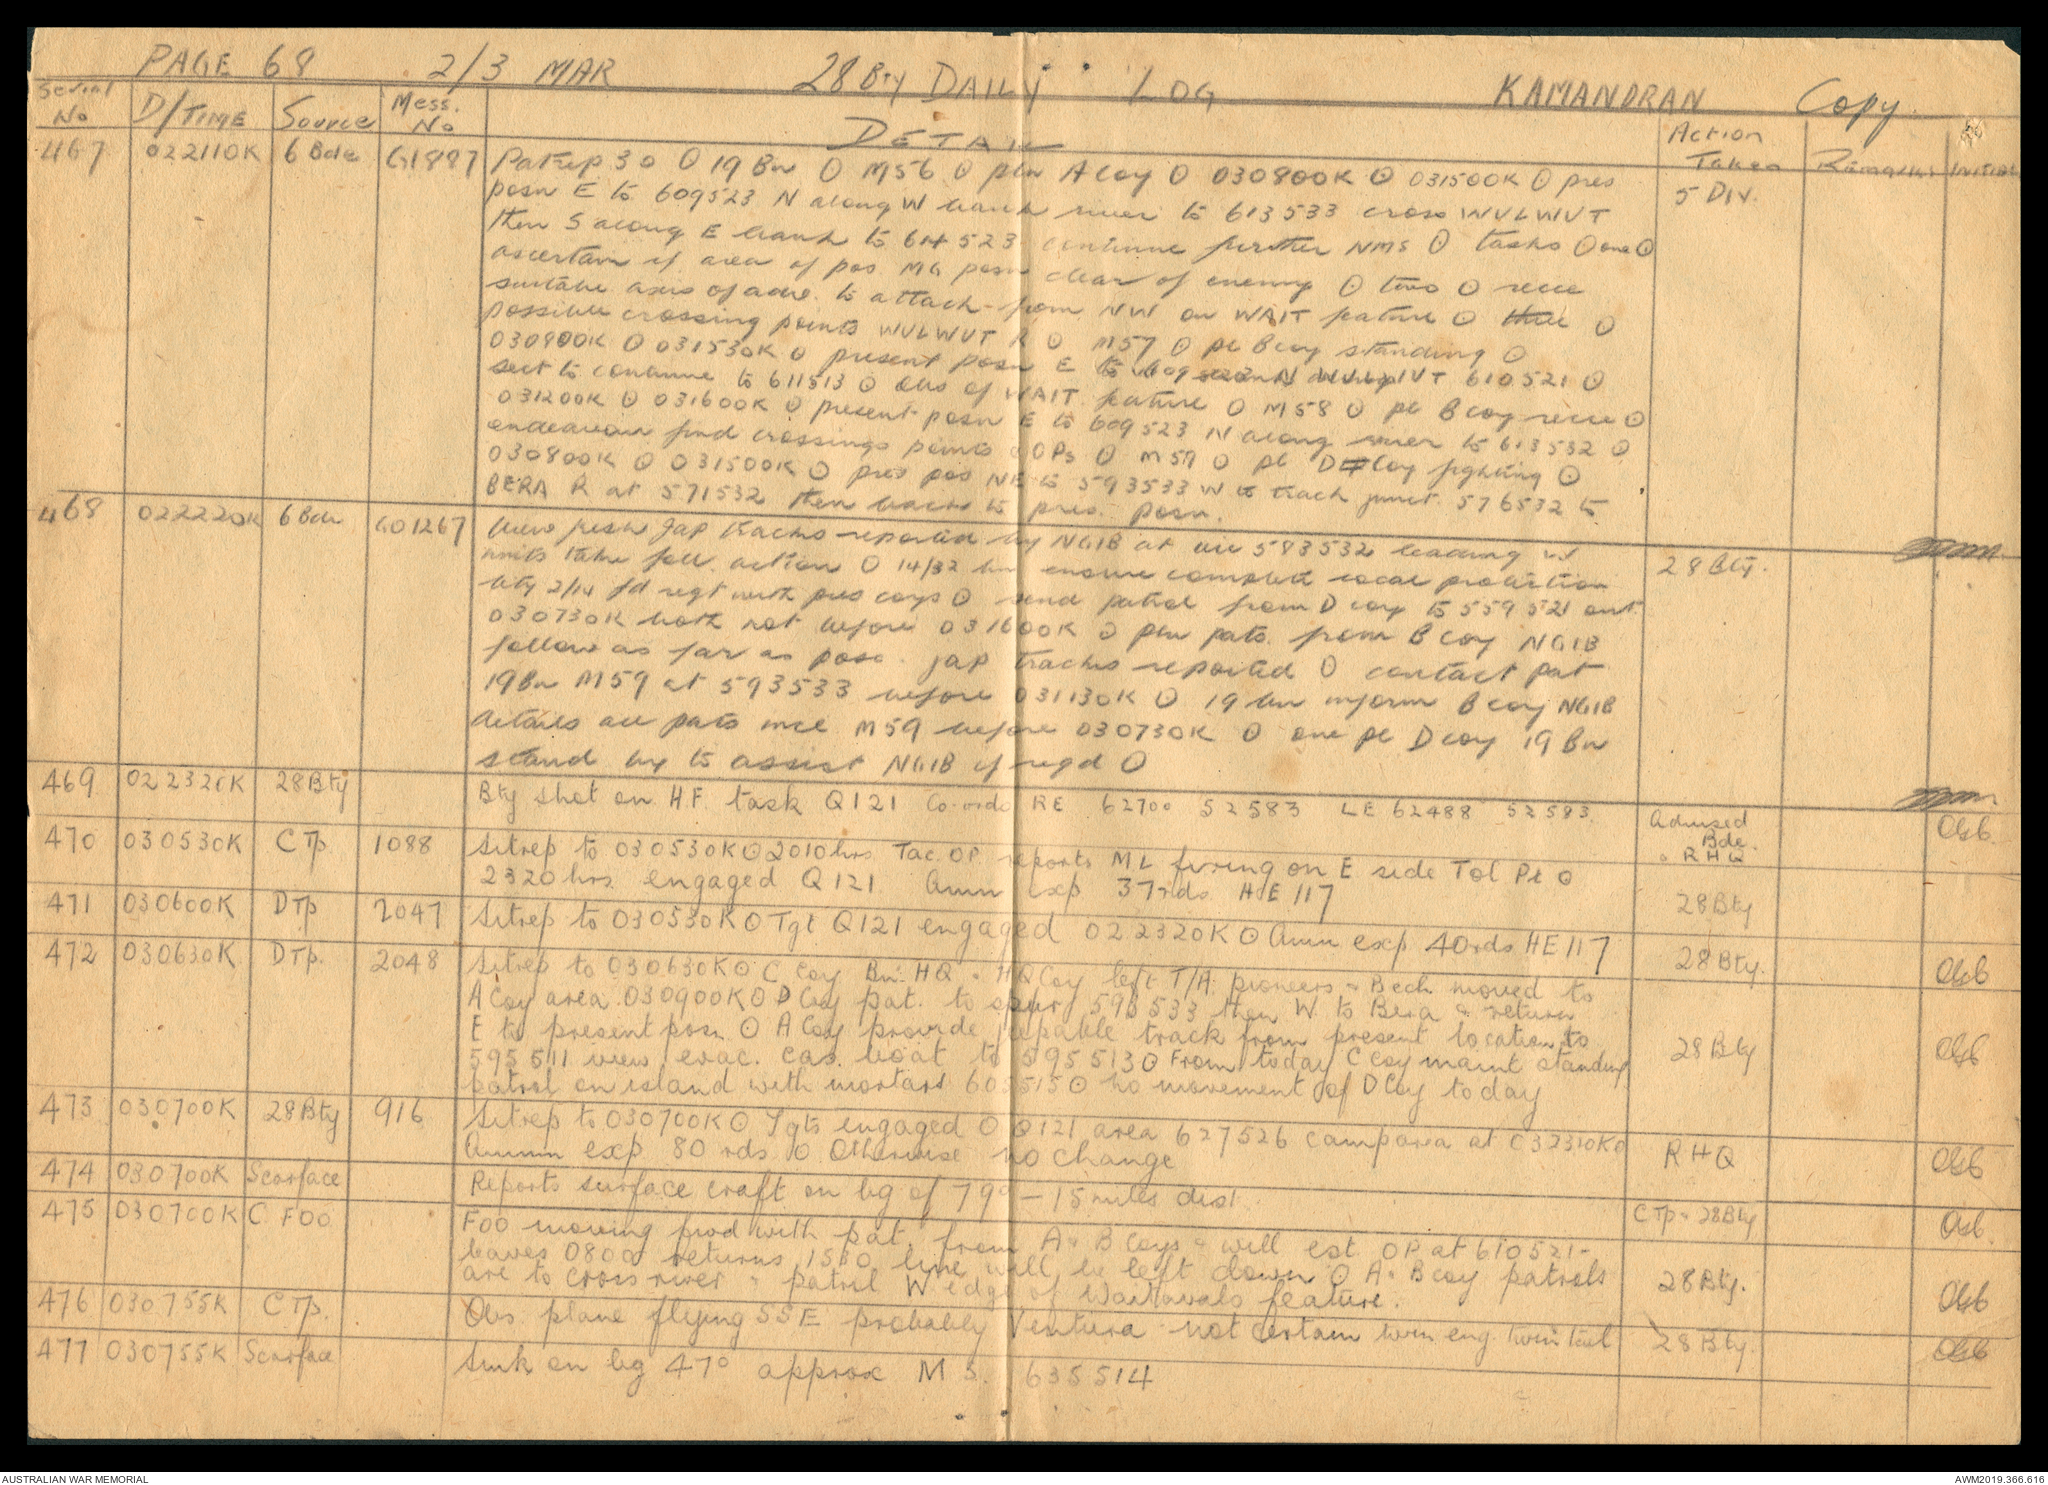 PAGE 68 2/3 MAR 28 Bty DAILY LOG KAMANDRAN Copy.
Serial No D/TIME Source Mess. No DETAIL Action Taken Remarks Initial
467 022110K 6 Bde G1887 Patrep 30 ⊙ 19 Bn ⊙ M56 ⊙ pln A Coy ⊙ 030800K ⊙ 031500K ⊙ pres 5 DIV.
posn E to 609523 N along W bank river to 613533 cross WULWUT
then S along E bank to 614523 continue further NMS ⊙ tasks ⊙ one ⊙
ascertain if area of pos MG posn clear of enemy ⊙ two ⊙ recce
suitable axis of adv. to attack from NW on WAIT feature ⊙ three ⊙
possible crossing points WULWUT R ⊙ M57 ⊙ pl B coy standing ⊙
030800K ⊙ 031530K ⊙ present posn E to 609523 N WULWUT 610521 ⊙
sect to continue to 611513 ⊙ obs of WAIT feature ⊙ M58 ⊙ pl B coy recce ⊙
031200K ⊙ 031600K ⊙ present posn E to 609523 N along river to 613532 ⊙
endeavour find crossings points OPs ⊙ M59 ⊙ pl D Coy fighting ⊙
030800K ⊙ 031500K ⊙ pres pos NE to 593533 W to track junct. 576532 to
BERA R at 571532 then back to pres. posn.
468 022220K 6 Bde GO1267 View fresh Jap tracks reported by NGIB at vic 583532 leading 28 Bty.
units take foll. action ⊙ 14/32 bn ensure complete local protection
bty 2/14 fd regt with pres coys ⊙ send patrol from D coy to 559521 out
030730K both not before 031600K ⊙ pln pats. from B coy NGIB
follow as far as poss. jap tracks reported ⊙ contact pat
19 Bn M59 at 593533 before 031130K ⊙ 19 bn inform B coy NGIB
details all pats incl M59 before 030730K ⊙ one pl D coy 19 Bn
stand by to assist NGIB if reqd ⊙
469 022320K 28 Bty Bty shot on HF task Q121 Co-ords RE 62700 52583 LE 62488 52583 Advised Bde. RHQ
470 030530K C Tp 1088 Sitrep to 030530K ⊙ 2010 hrs Tac. OP reports ML firing on E side Tol Pt ⊙
2320 hrs engaged Q121 Amm exp 37 rds HE 117 28 Bty
471 030600K D Tp 2047 Sitrep to 030530K ⊙ Tgt Q121 engaged 022320K ⊙ Amm exp 40 rds HE 117 28 Bty.
472 030630K D Tp. 2048 Sitrep to 030630K ⊙ C Coy Bn. HQ & HQ Coy left T/A. pioneers & Bech moved to
A Coy area 030900K ⊙ D Coy pat. to spur 593533 then W to Bera & return
E to present posn ⊙ A Coy provide jeepable track from present location to
595511 view evac. cas. boat to 595513 ⊙ From today C Coy maint standing 28 Bty
patrol on island with mortars 603515 ⊙ no movement of D Coy today
473 030700K 28 Bty 916 Sitrep to 030700K ⊙ Tgts engaged ⊙ Q121 area 627526 camp area at 032310K ⊙
Ammn exp 80 rds ⊙ Otherwise no change RHQ
474 030700K Scarface Reports surface craft on bg of 79° - 15 miles dist. C Tp & 28 Bty
475 030700K C FOO FOO moving fwd with pat. from A & B Coys & will est OP at 610521 -
leaves 0800 returns 1530 line will be left down ⊙ A & B coy patrols
are to cross river & patrol W edge of Waitavalo feature. 28 Bty.
476 030755K C Tp. Obs plane flying SSE probably Ventura not certain twin eng. twin tail 28 Bty.
477 030755K Scarface Smk on bg 47° approx M S. 635514
AUSTRALIAN WAR MEMORIAL AWM2019.366.616